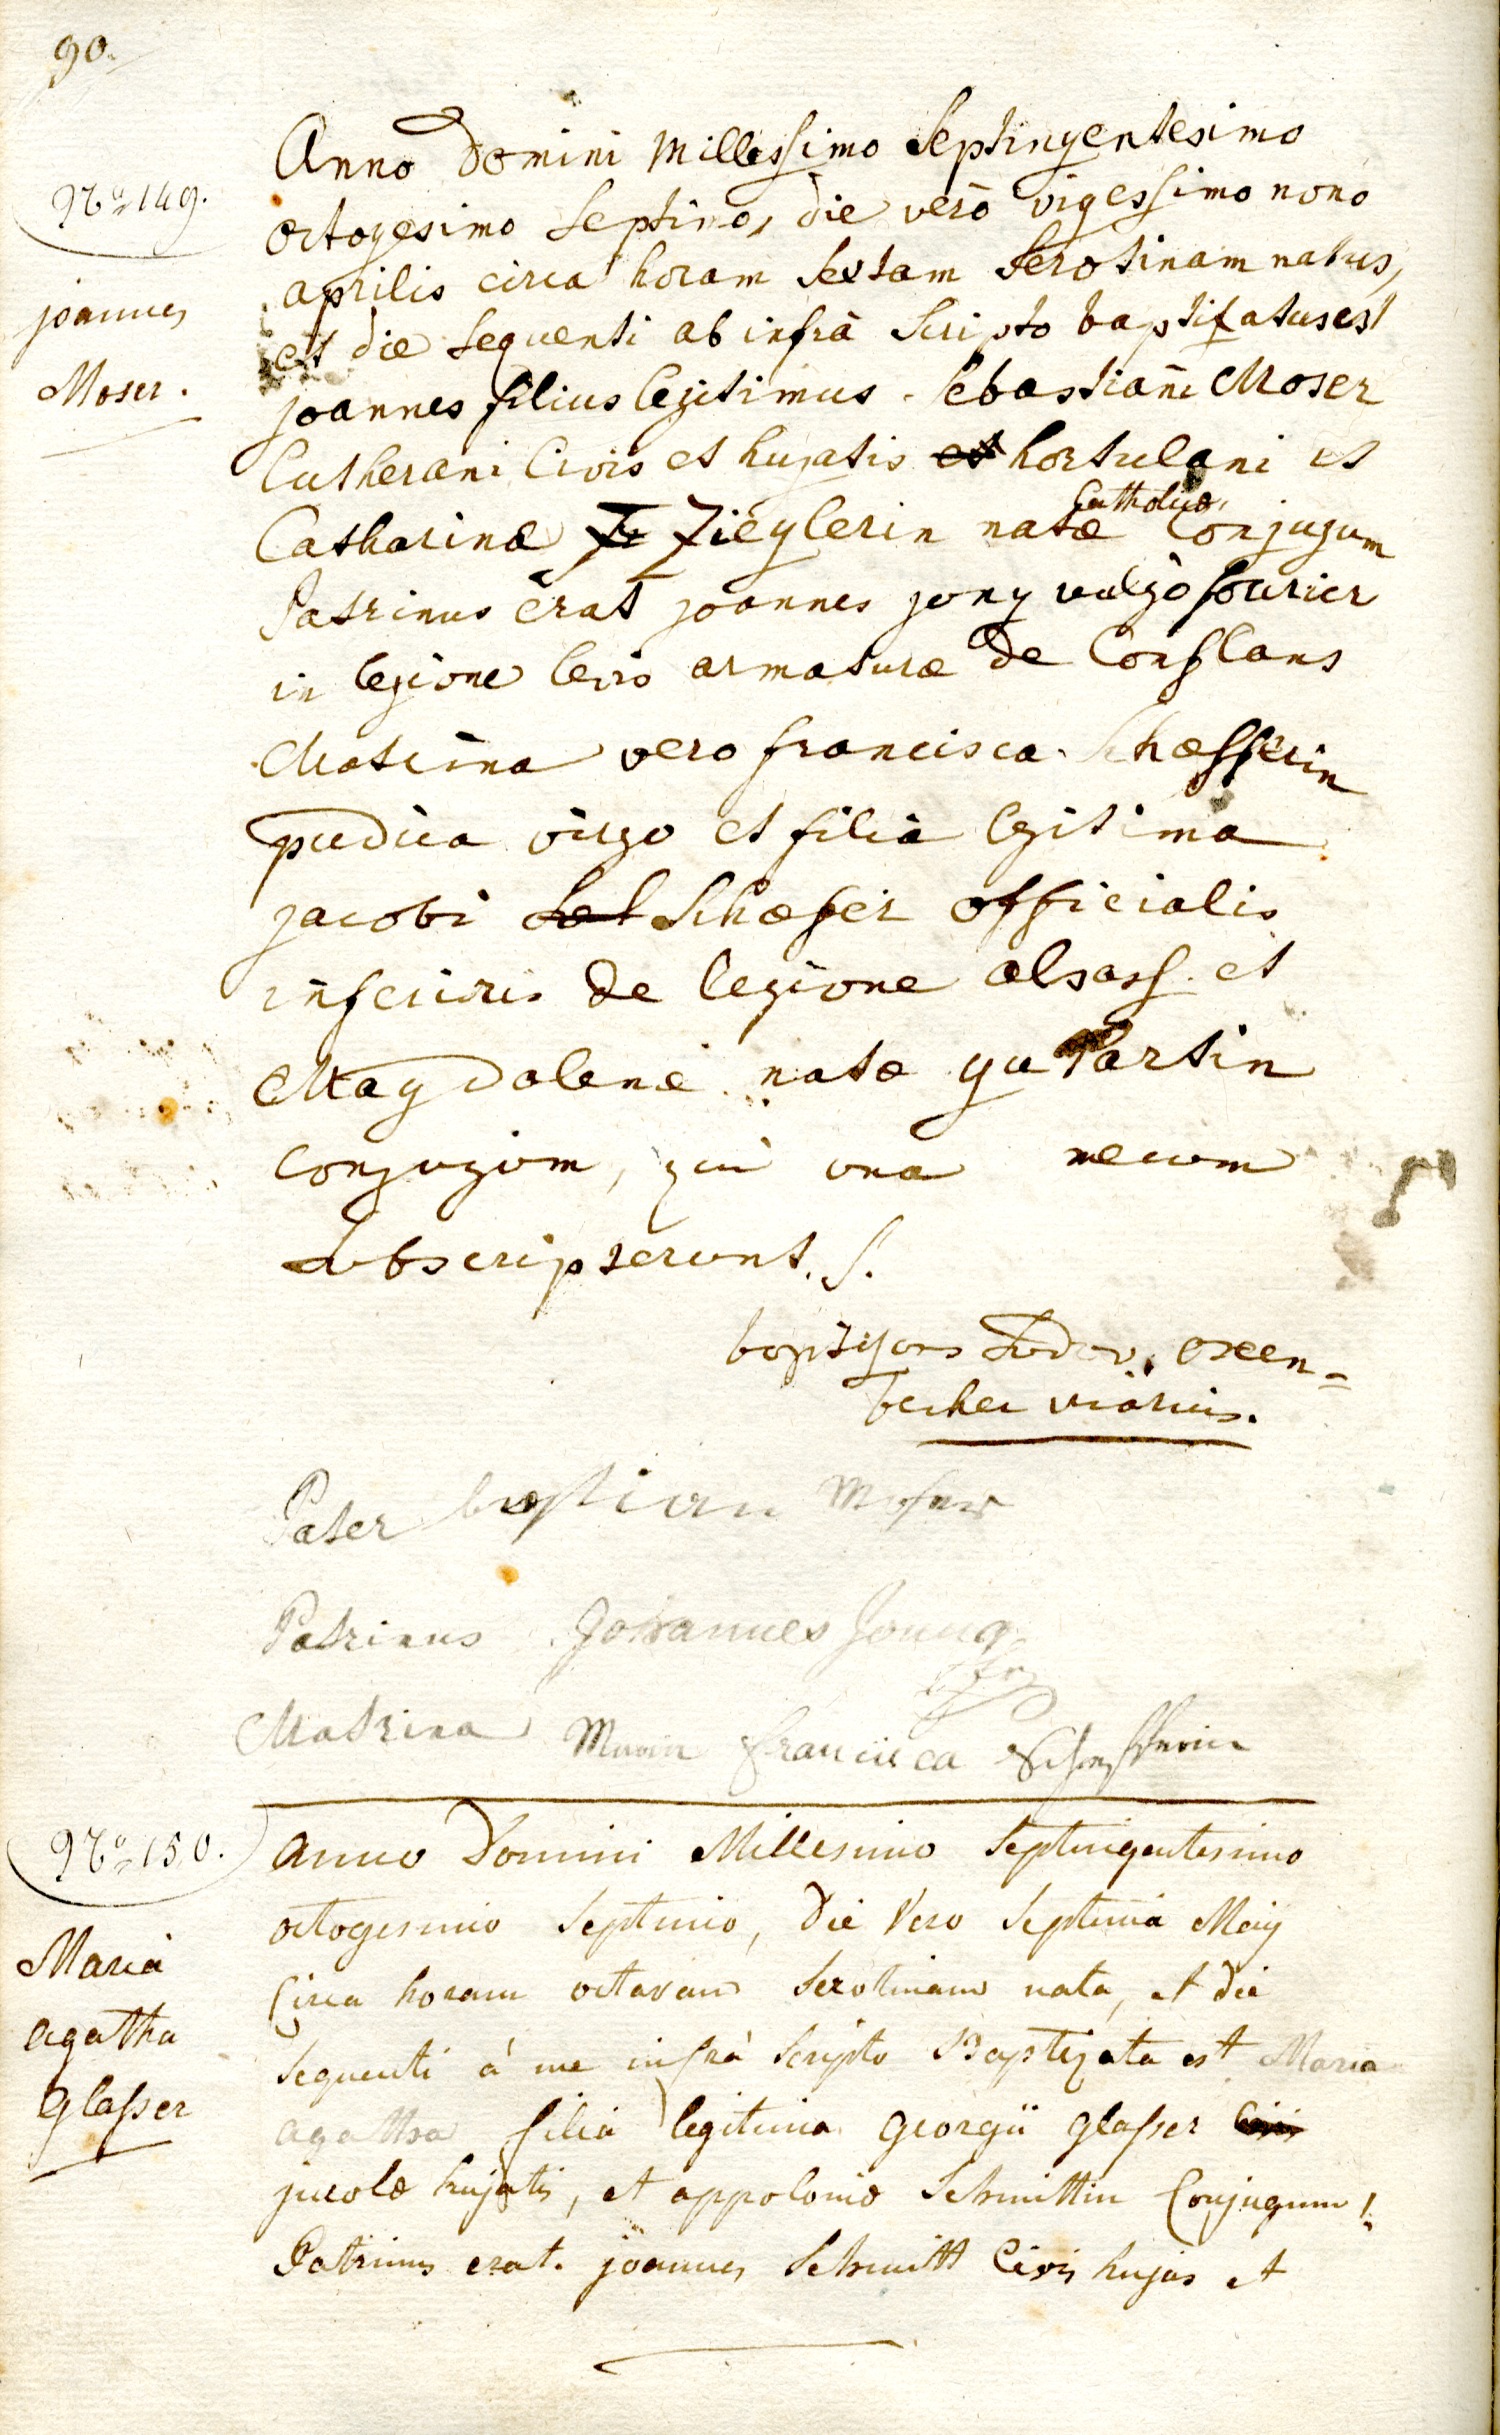 90.
Nro 149.
joannes
Moser.
Anno Domini Millessimo Septingentesimo
octogesimo Septimo, die verò vigessimo nono
aprilis circa horam Sextam Serotinam natus,
et die Sequenti ab infrà Scripto baptizatus est
joannes filius legitimus Sebastiani Moser
Lutherani Civis et hujatis et hortulani et
Catholicæ,
Catharinæ Zieglerin natæ Conjugum
Patrinus erat joannes jung vulgo fourier
in legione levis armaturæ de Conflans
Matrina vero francisca Schæfferin
pudica virgo et filia legitima
jacobi Schæfer officialis
inferioris de legione alsass. et
Magdalenæ natæ
conjugum, qui una mecum
subscripserunt. S.
baptizans Ludov. oxen-
becher vicarius.
Pater bastian Moser
Patrinus Johannes Joung
Matrina Maria francisca Schefferin
Nro 150.
Maria
agatha
Glasser
anno Domini Millesimo Septingentesimo
octogesimo Septimo, die Vero Septima Maij
Circa horam octavam Serotinam nata, et die
Sequenti à me infrà Scripto Baptizata est Maria
agatha filia legitima Georgii Glasser
jncolæ hujatis, et appoloniæ Schmittin Conjugum!
Patrinus erat joannes Schmitt Civis hujas et